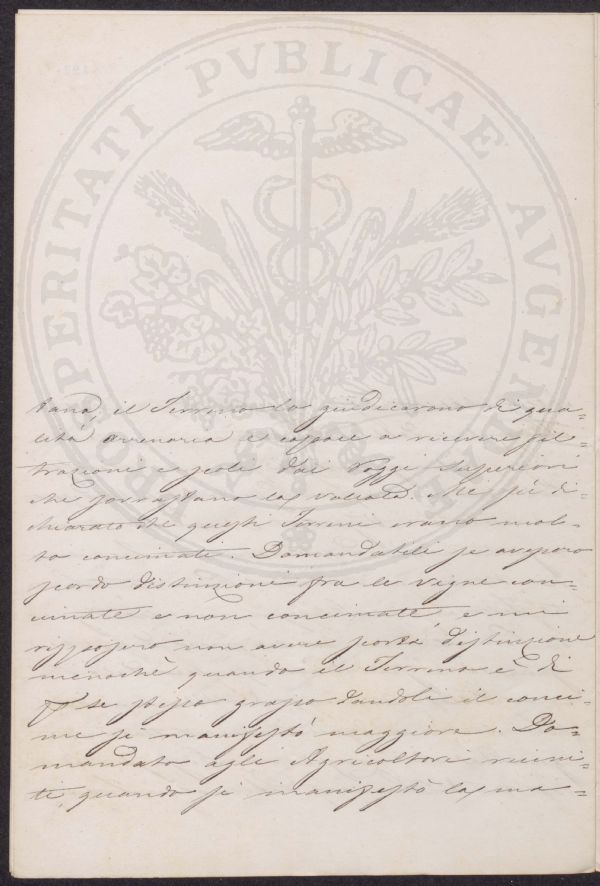 PROSPERITATI PVBLICAE AVGENDAE
tana, il Terreno lo giudicarono di qua=
lità arrenaria e capace a ricevere fil=
trazioni e scoli dai Poggi superiori
che sovrastano la vallata. Me fù di=
chiarato che questi Terreni erano mol=
to concimati. Domandatili se avessero
scordo distinzioni fra le vigne con=
cimate e non concimate, e mi
risposero non avere scorta distinzione
menochè quando il Terreno è di
per se stesso grasso dandoli il conci=
me si manifestò maggiore. Do=
mandato agli Agricoltori riuni=
ti, quando si manifestò la ma=